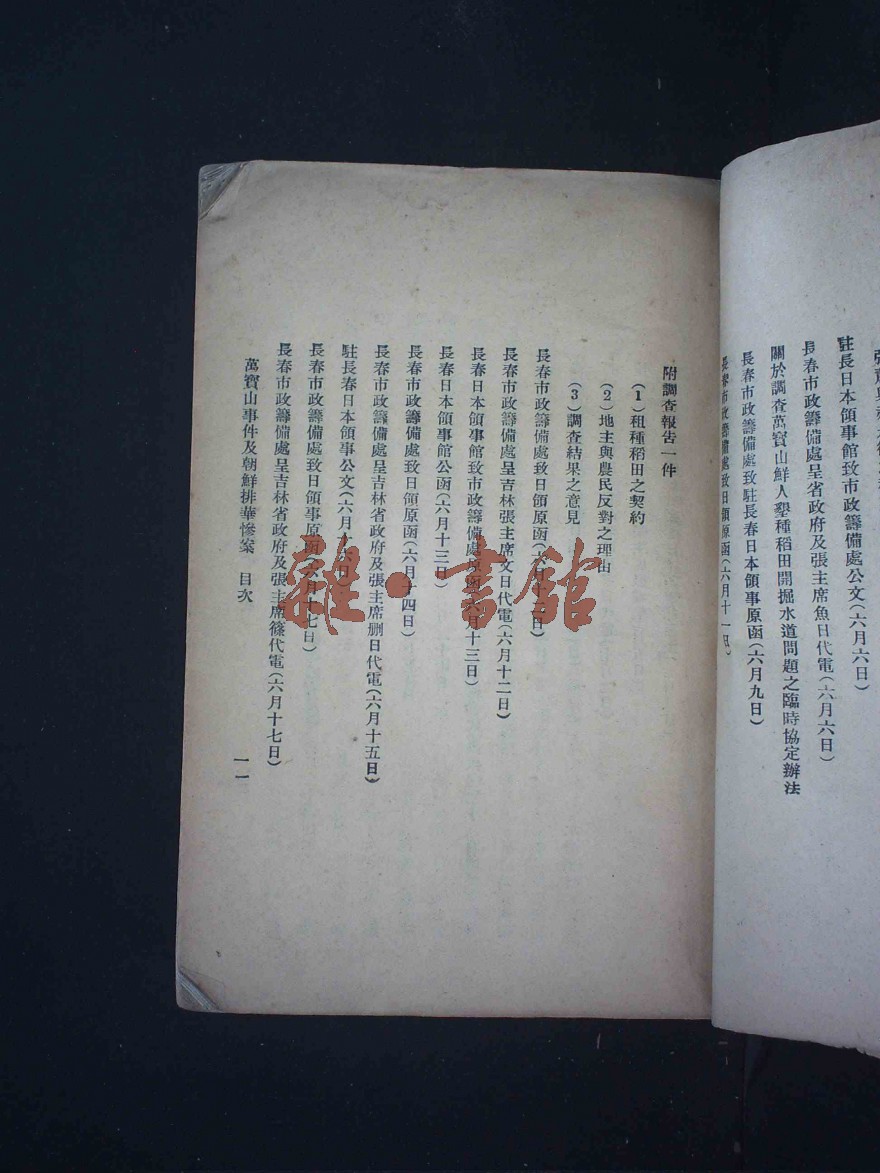 駐長日本領事館致市政籌備處公文(六月六日)
長春市政籌備處呈省政府及張主席魚日代電(六月六日)
關於調查萬寶山鮮人墾種稻田開掘水道問題之臨時協定辦法
長春市政籌備處致駐長春日本領事原函(六月九日)
長春市政籌備處致日領原函(六月十一日)
附調查報告一件
(1)租種稻田之契約
(2)地主與農民反對之理由
(3)調查結果之意見
長春市政籌備處致日領原函(六月十二日)
長春市政籌備處呈吉林張主席文日代電(六月十二日)
長春日本領事館致市政籌備處原函(六月十三日)
長春日本領事館公函(六月十三日)
長春市政籌備處致日領原函(六月十四日)
長春市政籌備處呈吉林省政府及張主席删日代電(六月十五日)
駐長春日本領事公文(六月十六日)
長春市政籌備處致日領事原函(六月十七日)
長春市政籌備處呈吉林省政府及張主席篠代電(六月十七日)
萬寶山事件及朝鮮排華慘案 目次
一一
雜·書館